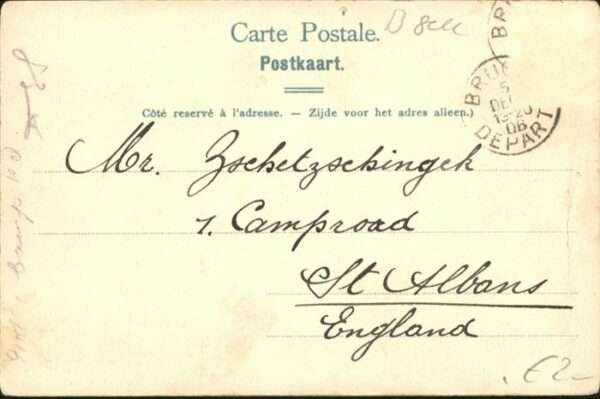 Carte Postale.
Postkaart.
Côté reservé à l'adresse. — Zijde voor het adres alleen.)
BRU
5
DEC
19-20
06
DEPART
BR
Mr. Zschetzschingek
1. Camproad
St Albans
England
£2-